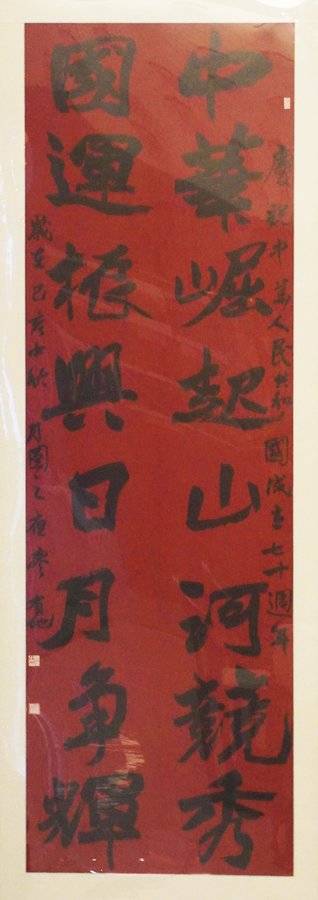 慶祝中華人民共和國成立七十週年
中華崛起山河競秀
國運振興日月争輝
歲在己亥中秋月圓之夜